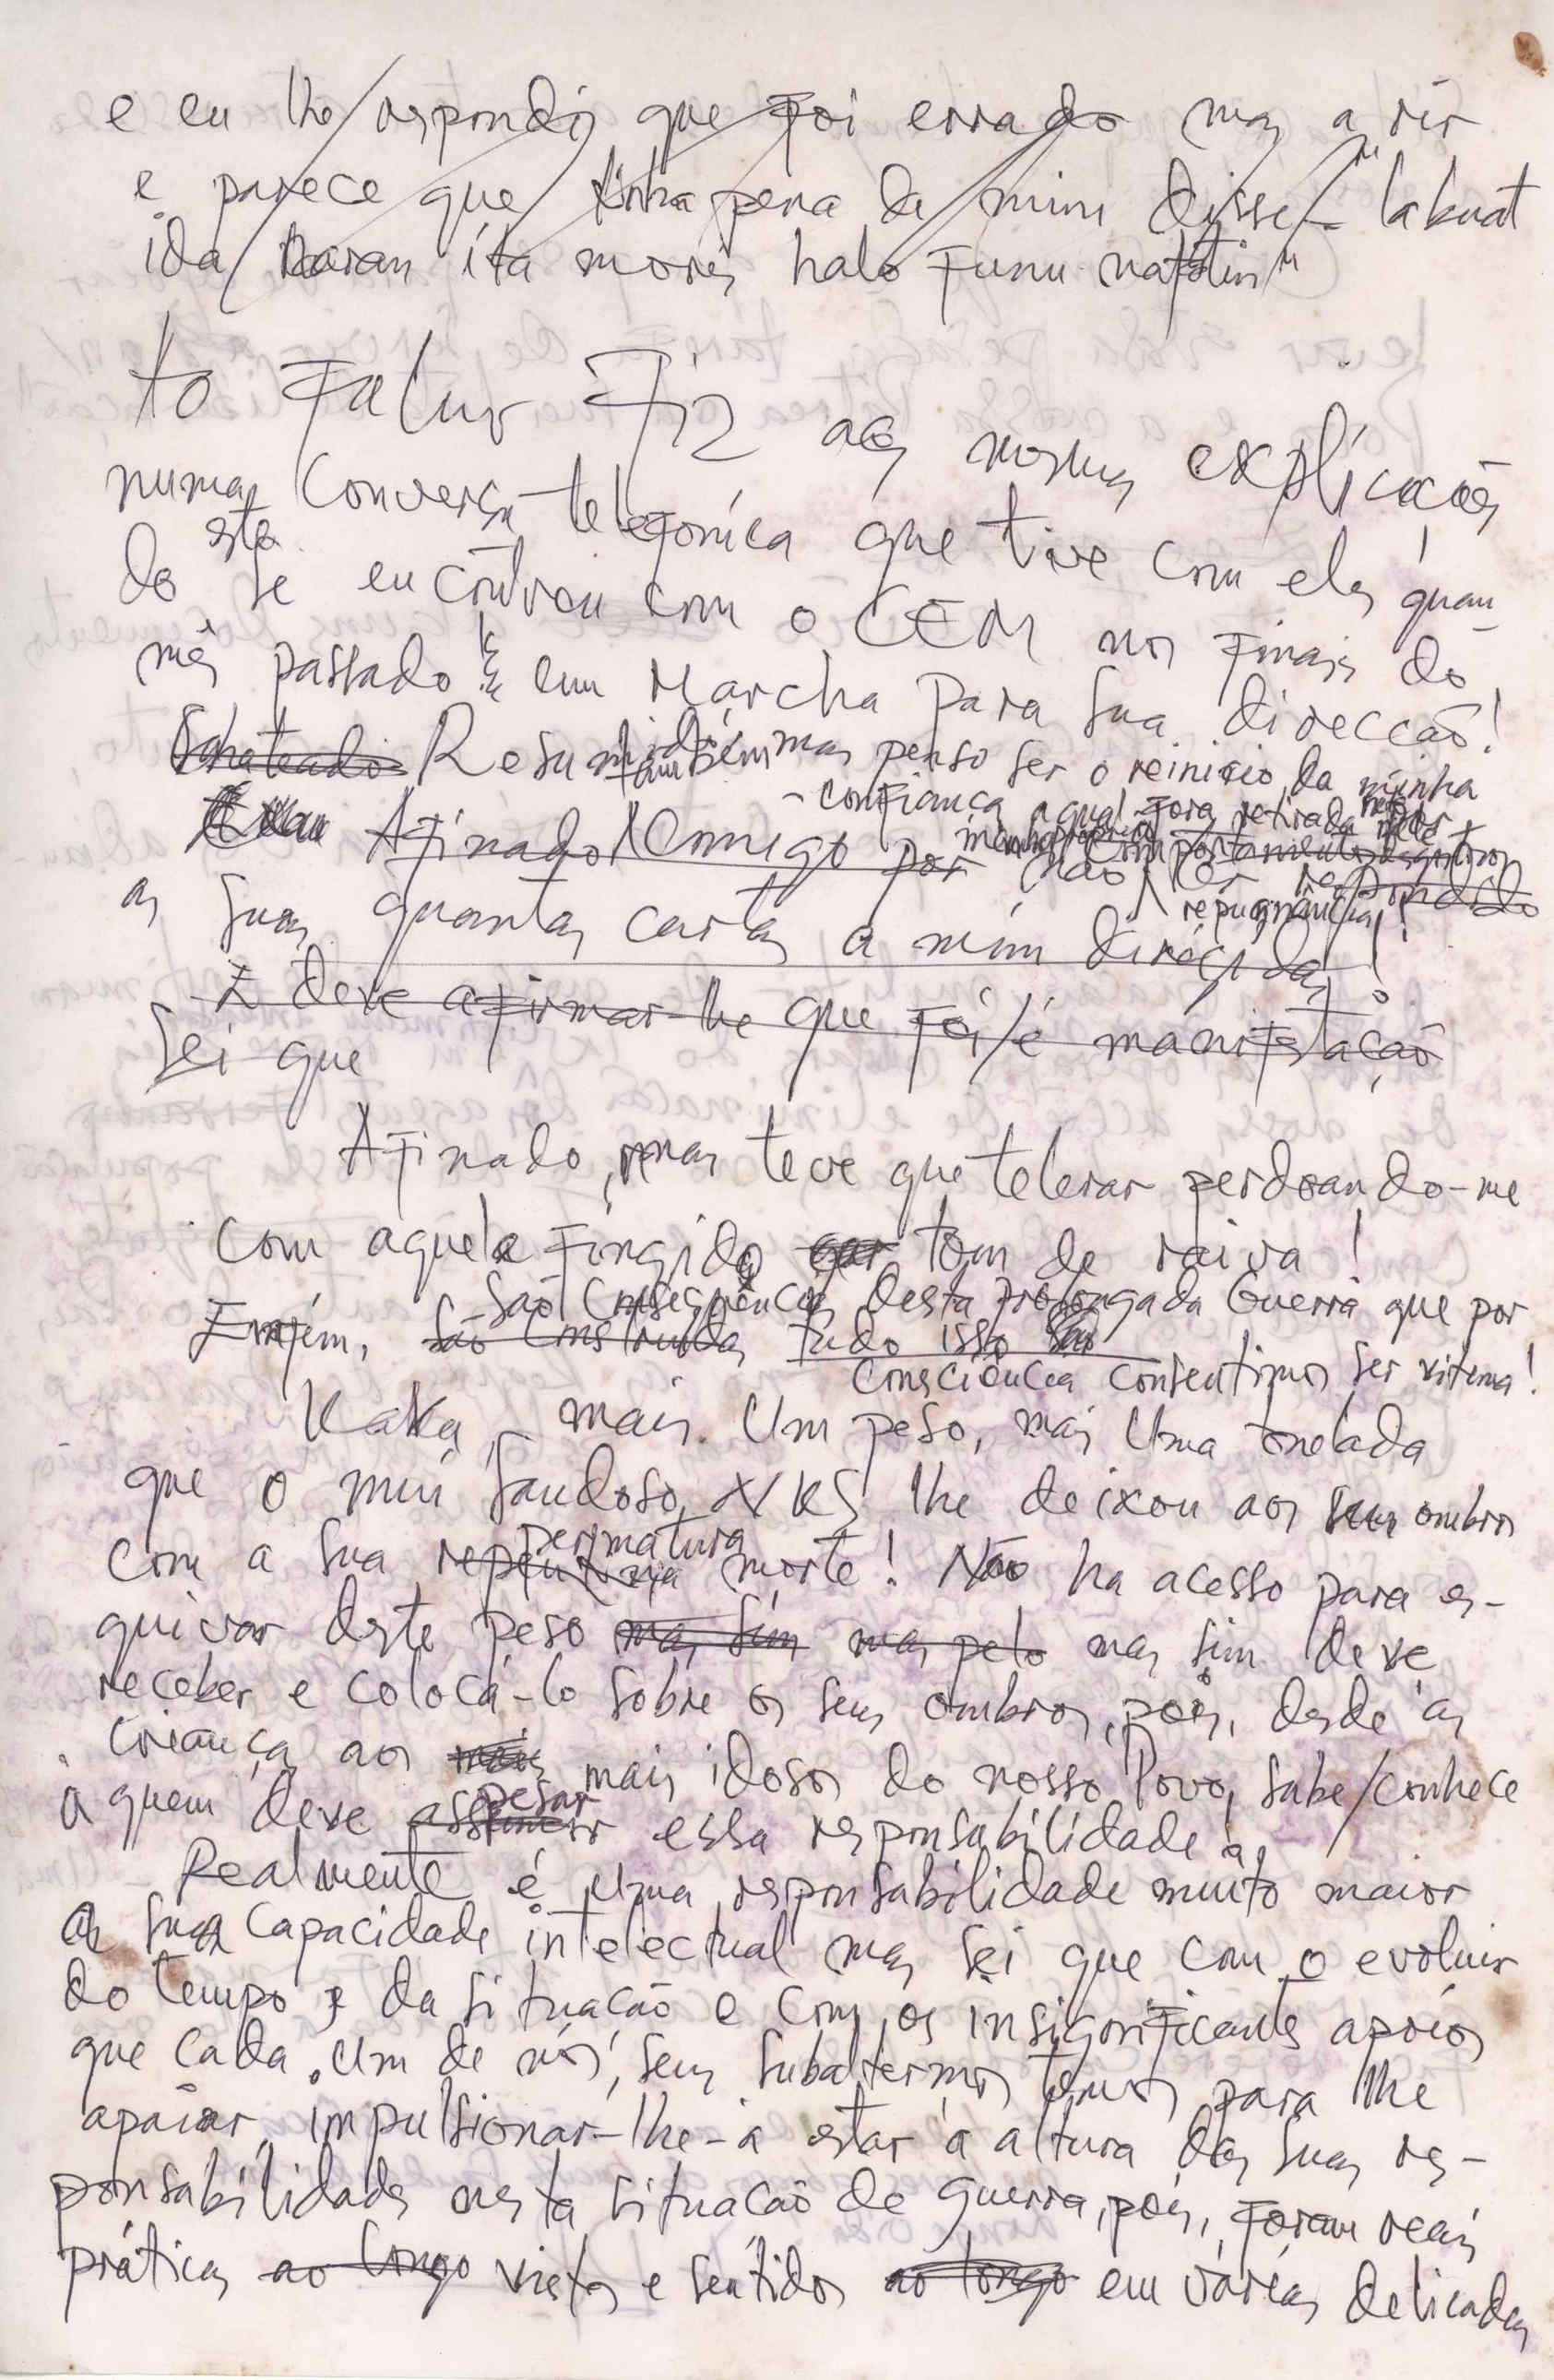 e eu lhe respondi que foi errado mas a rir
e parece que tinha pena de mim disse - "labuat
ida naran ita moris halo funu nafatin"
to Falur Fiz as mesmas explicações
numa conversa telefónica que tive com eles quan-
do este se encontrou com o CEM nos finais do
mês passado em Marcha para sua direcção!
Chateado Resumido também mas penso ser o reinicio da minha
- confiança a qual fora retirada
Afinado comigo por não ter respondido
repugnância!
as suas quantas cartas a mim dirigidas!
E deve afirmar-lhe que foi/é manifestação
Sei que
Afinado, mas teve que telerar perdoando-me
com aquele fingido tom de raiva!
São consequências desta prolongada Guerra que por
Enfim, são construídas tudo isso
consciência consentimos ser vitima!
Kaka, mais um peso, mais uma tonelada
que o meu saudoso NKS lhe deixou aos seus ombros
permatura
com a sua repentina morte! Não ha acesso para es-
quivar deste peso mas sim mas pelo mas sim deve
receber e colocá-lo sobre os seus ombros, pois, desde as
criança aos mais mais idosos do nosso Povo, sabe/conhece
pesar
à quem deve assumir essa responsabilidade
Realmente é uma responsabilidade muito maior à
sua capacidade intelectual mas sei que com o evoluir
do tempo e da situação e com os insignificantes apoios
que cada um de nós, seus subalternos temos para lhe
apoiar, impulsionar-lhe-á estar à altura das suas res-
ponsabilidades nesta situação de guerra, pois, foram reais
práticas ao longo vistos e sentidos ao longo em várias delicadas